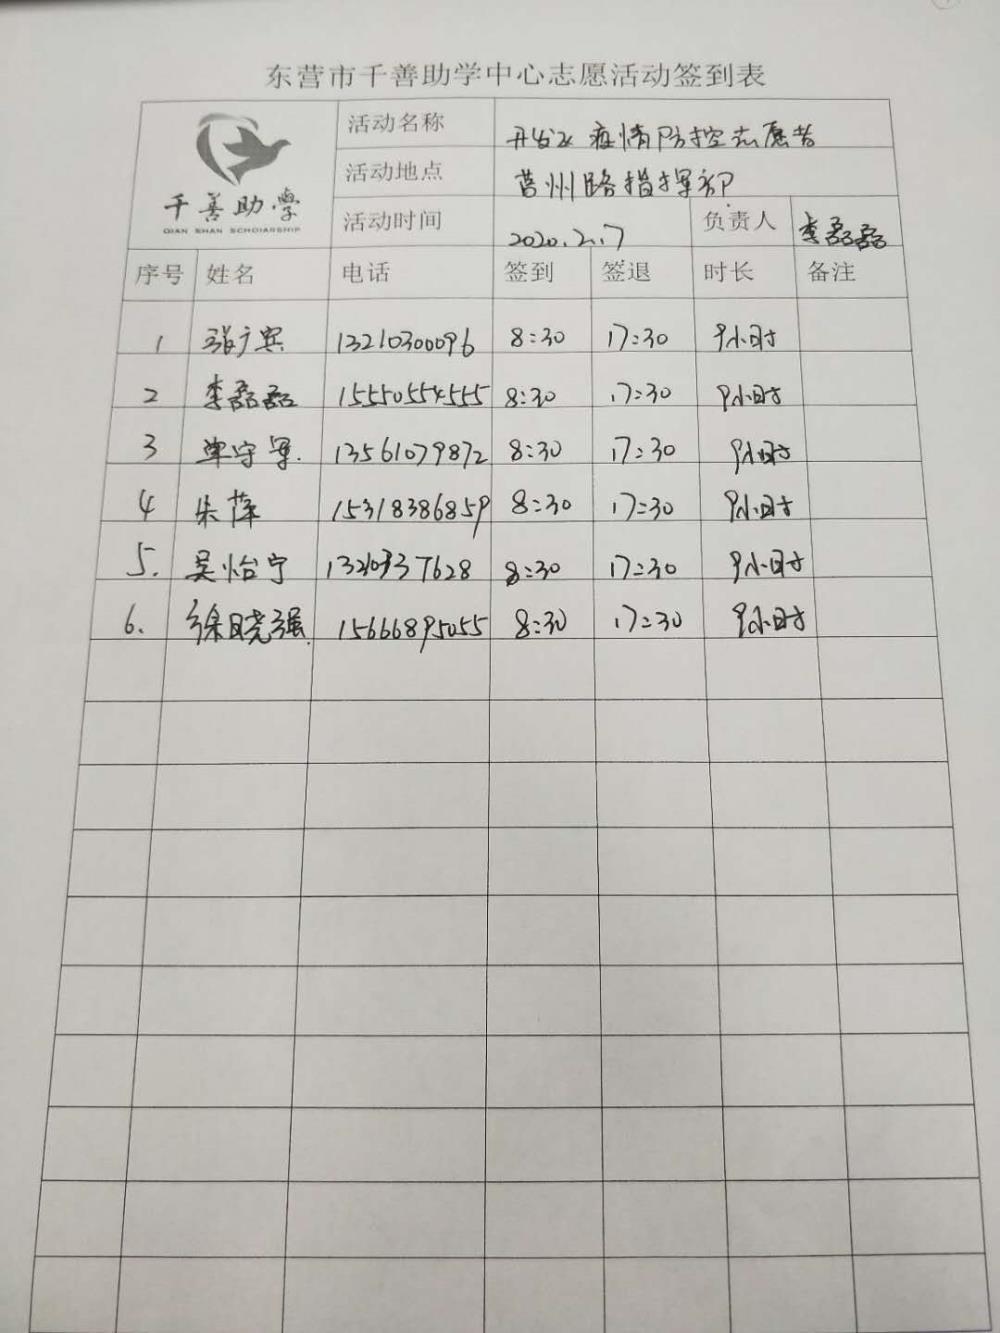 东营市千善助学中心志愿活动签到表
千善助学
QIAN SHAN SCHOIARSHIP
活动名称 开发区疫情防控志愿者
活动地点 莒州路指挥部
活动时间 2020.2.7 负责人 李磊磊
序号 姓名 电话 签到 签退 时长 备注
1 张广宾 13210300096 8:30 17:30 9小时
2 李磊磊 15550554555 8:30 17:30 9小时
3 单守军. 13561079872 8:30 17:30 9小时
4 朱萍 15318386859 8:30 17:30 9小时
5. 吴怡宁 8:30 17:30 9小时
6. 徐晓强. 15666895055 8:30 17:30 9小时